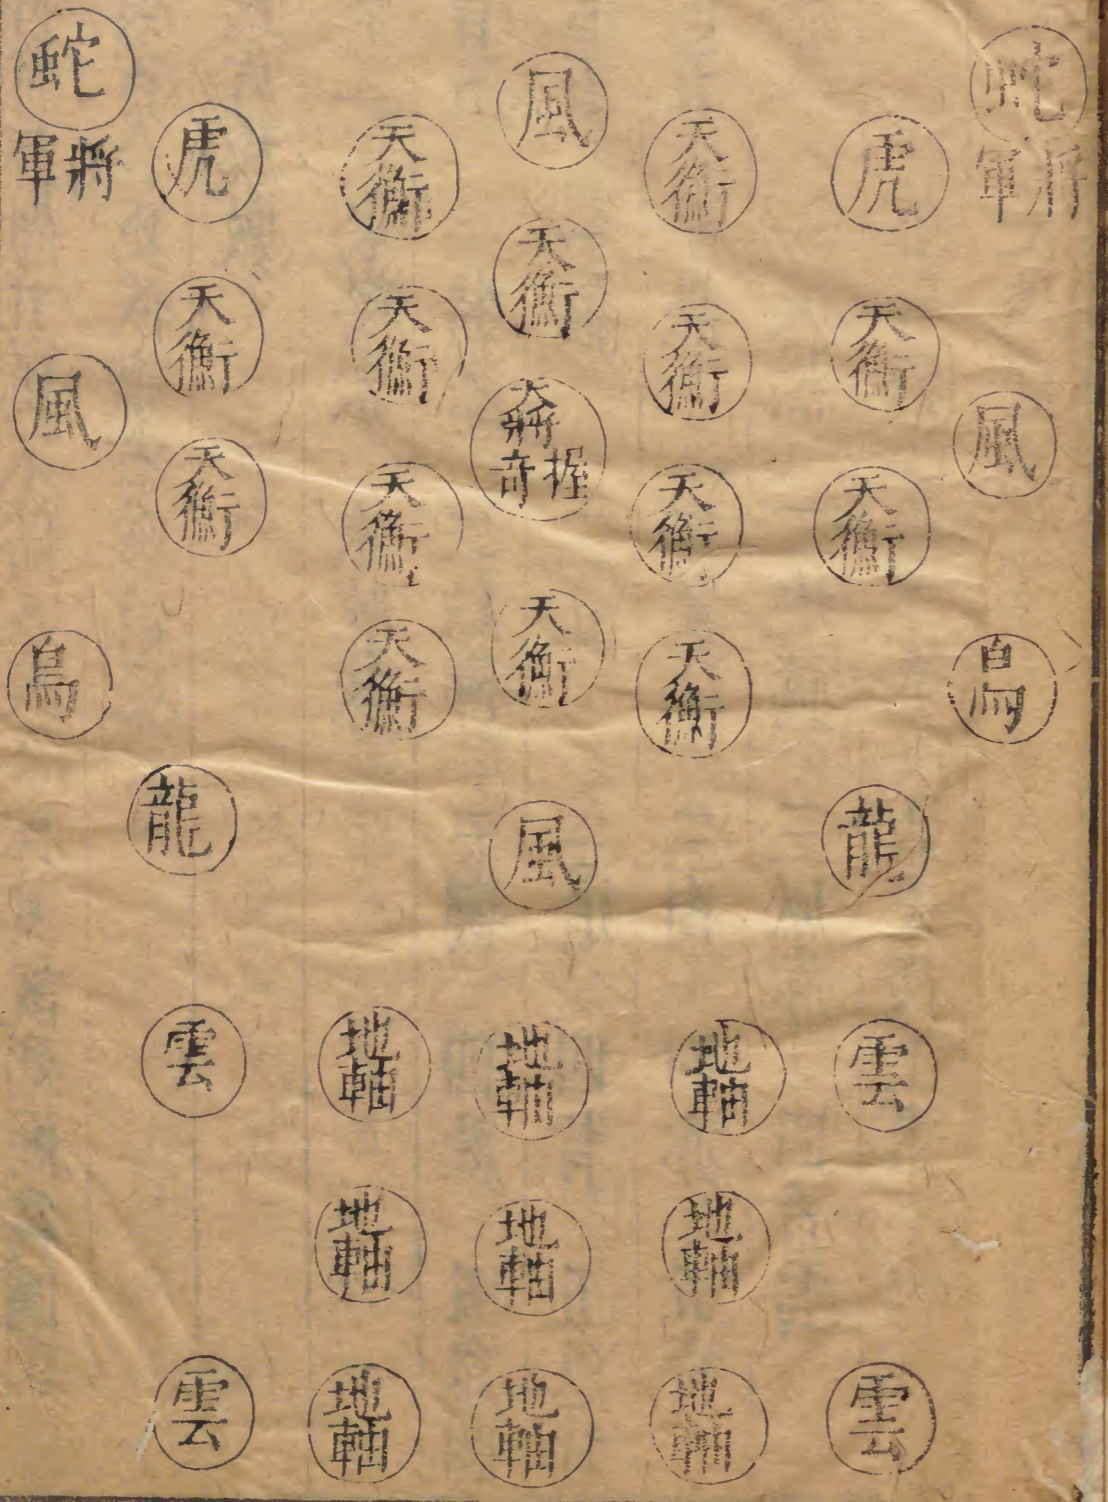 蛇
將軍
風
鳥
虎
天衡
天衡
龍
雲
雲
天衡
天衡
天衡
天衡
地軸
地軸
地軸
風
天衡
大將
握奇
天衡
風
地軸
地軸
地軸
天衡
天衡
天衡
天衡
地軸
地軸
地軸
虎
天衡
天衡
龍
雲
雲
蛇
將軍
風
鳥